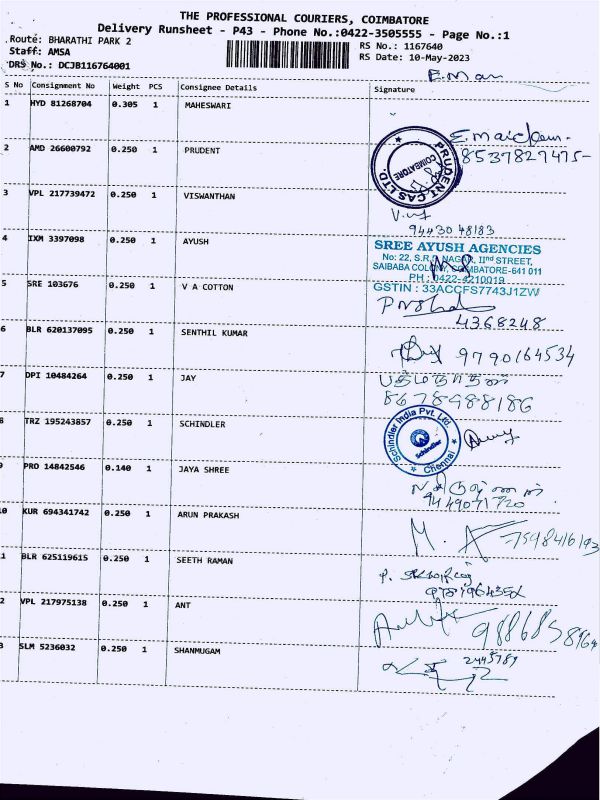 THE PROFESSIONAL COURIERS, COIMBATORE
Delivery Runsheet - P43 - Phone No.:0422-3505555 - Page No.:1
Route: BHARATHI PARK 2
RS No.: 1167640
Staff: AMSA
RS Date: 10-May-2023
DRS No.: DCJB116764001
S No Consignment No Weight PCS Consignee Details Signature
1 HYD 81268704 0.305 1 MAHESWARI
2 AMD 26600792 0.250 1 PRUDENT
PRUDENT CAS LTD.
COIMBATORE
8537827475-
3 VPL 217739472 0.250 1 VISWANTHAN
94430 48183
4 IXM 3397098 0.250 1 AYUSH
SREE AYUSH AGENCIES
No: 22, S.R.S. NAGAR, IInd STREET,
SAIBABA COLONY, COIMBATORE-641 011
PH : 0422-4210019
GSTIN : 33ACCFS7743J1ZW
5 SRE 103676 0.250 1 V A COTTON
4368248
6 BLR 620137095 0.250 1 SENTHIL KUMAR
9790164534
7 DPI 10484264 0.250 1 JAY
பத்மநாதன்
8678988186
8 TRZ 195243857 0.250 1 SCHINDLER
Schindler India Pvt. Ltd
Schindler
Chennai
9 PRO 14842546 0.140 1 JAYA SHREE
9449071720
10 KUR 694341742 0.250 1 ARUN PRAKASH
M.
1 BLR 625119615 0.250 1 SEETH RAMAN
2 VPL 217975138 0.250 1 ANT
3 SLM 5236032 0.250 1 SHANMUGAM
2445789